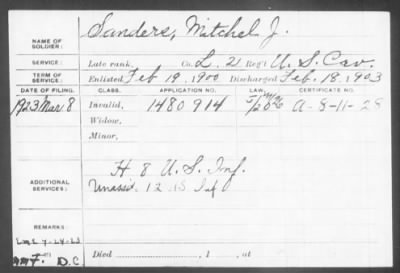 NAME OF SOLDIER: Sanders, Mitchel J.
SERVICE: Late rank, Co. L, 21 Reg't U. S. Cav.
TERM OF SERVICE: Enlisted Feb 19, 1900 Discharged Feb. 18, 1903
DATE OF FILING. CLASS. APPLICATION NO. LAW. CERTIFICATE NO.
1923 Mar 8 Invalid, 1480914 A-8-11-28
Widow,
Minor,
ADDITIONAL SERVICES: H 8 U. S. Inf.
Unassd. 12, 15 Inf
REMARKS:
D.C. Died , 1 , at